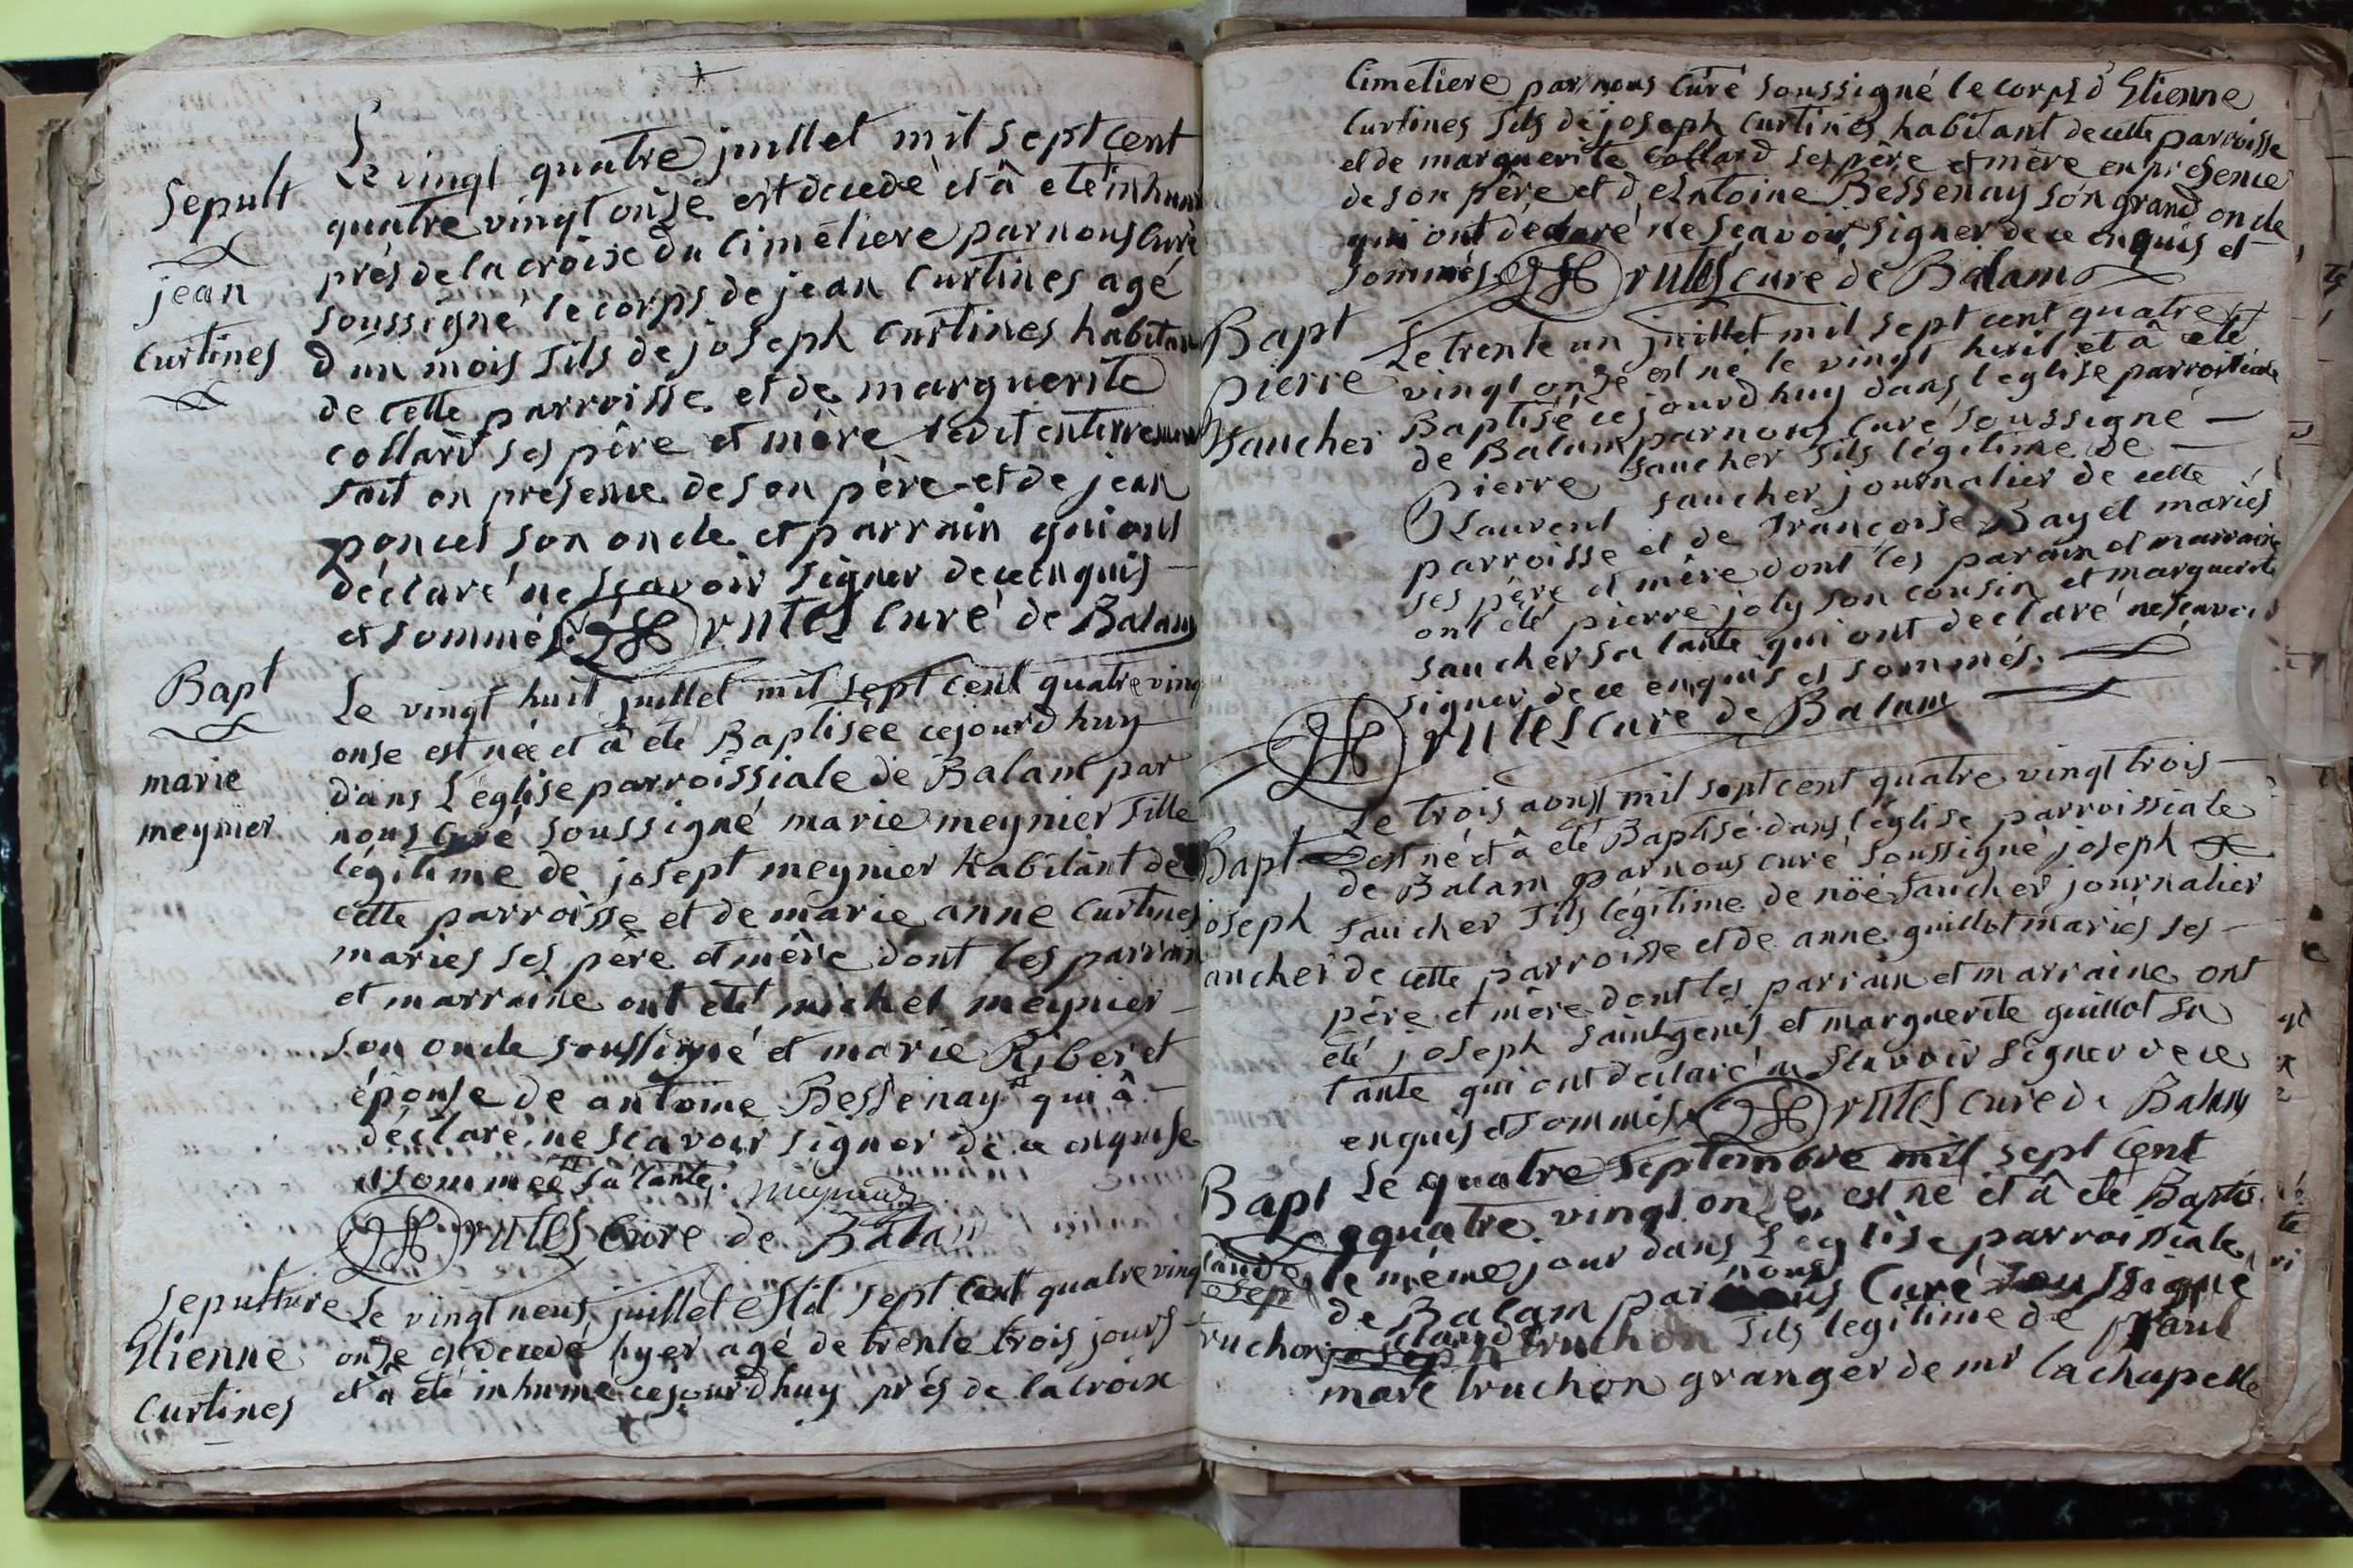 Sepult
jean
Curtines
Le vingt quatre juillet mil sept cent
quatre vingt onse est decedé et â eté inhum
prés de la croise du Cimétiere par nous Curé
soussigné le corps de jean Curtines agé
d'un mois fils de joseph Curtines habitan
de cette parroisse et de marguerite
collard ses pére et mére ledit enterremen
fait en presence de son pére et de jean
poncet son oncle et parrain qui ont
déclaré ne sçavoir signer de ce enquis
et sommés. Brutes Curé de Balam
Bapt
marie
meynier
Le vingt huit juillet mil sept cent quatre ving
onse est née et â eté Baptisée cejourdhuy
dans L'église parroissiale de Balam par
nous Curé soussigné marie meynier fille
légitime de josept meynier habitant de
cette parroisse et de marie anne Curtines
maries ses pére et mére dont les parrain
et marraine ont eté michel meynier
son oncle soussigné et marie Riberet
épouse de antoine Bessenay # qui â
déclaré ne scavoir signer de ce enquise
et sommée # sa tante. meynier
Brutes Cure de Balan
Sepulture
Etienne
Curtines
Le vingt neuf juillet mil sept cent quatre ving
onse est decedé hyer agé de trente trois jours
et â eté inhumé cejourdhuy prés de la croix
Cimetiere par nous Curé soussigné le corps d'Etienne
Curtines fils de joseph Curtines habitant de cette parroisse
et de marguerite Collard ses pére et mére en presence
de son pére et d'Antoine Bessenay son grand oncle
qui ont declaré ne sçavoir signer de ce enquis et
sommés. Brutes curé de Balam
Bapt
pierre
Faucher
Le trente un juillet mil sept cent quatre
vingt onse est né le vingt huit et â eté
Baptisé cejourdhuy dans l'eglise parroissiale
de Balam par nous Curé soussigné
Pierre faucher fils légitime de
Laurent faucher journalier de cette
parroisse et de Françoise Bayet mariés
ses pére et mére dont les parain et marraine
ont eté pierre joly son cousin et marguerite
faucher sa tante qui ont declaré ne scavoi
signer de ce enquis et sommés.
Brutes Cure de Balam
Bapt
joseph
faucher
Le trois aoust mil sept cent quatre vingt trois
est né et â eté Baptisé dans l'église parroissiale
de Balam par nous curé soussigné joseph
faucher fils légitime de nöé faucher journalier
de cette parroisse et de anne guillot mariés ses
pére et mére dont les parrain et marraine ont
eté joseph saintgenis et marguerite guillot sa
tante qui ont declaré ne scavoir signer de ce
enquis et sommés. Brutes curé de Balam
Bapt
claude
josep
truchon
Le quatre septembre mil sept cent
quatre vingt onse est né et â eté Baptis
le méme jour dans L'église parroissiale
de Balam par nous Curé soussigné
claude joseph truchon fils legitime de paul
marc truchon granger de mr lachapelle